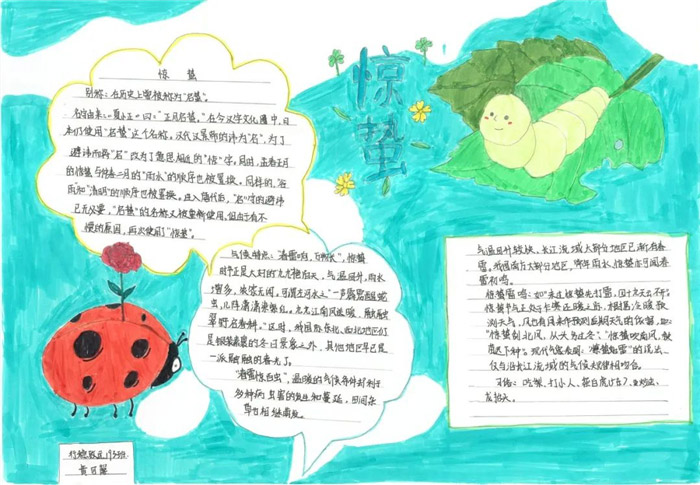 惊蛰
惊 蛰
别称：在历史上曾被称为“启蛰”。
名称由来：《夏小正》曰：“正月启蛰。”在今汉字文化圈中，日
本仍使用“启蛰”这个名称。汉代汉景帝的讳为“启”，为了
避讳而将“启”改为了意思相近的“惊”字。同时，孟春正月
的惊蛰与仲春二月的“雨水”的顺序也被置换。同样的，“谷
雨”和“清明”的顺序也被置换。进入唐代后，“启”字的避讳
已无必要，“启蛰”的名称又被重新使用。但由于有不
惯的原因，再次使用了“惊蛰”。
气候特征：“春雷响，万物长”，惊蛰
时节正是大好的“九九”艳阳天，气温回升，雨水
增多，农家无闲。
虫，几阵清来
草野启春耕。”这时，我国除东北、西北地区仍
是银装素裹的冬日景象之外，其他地区早已是
一派融融的春光了。
“春雷惊百虫”，温暖的气候条件利于
多种病虫害的发生和蔓延，田间杂
草也相继萌发。
气温回升较快，长江流域大部分地区已渐有春
雷。我国南方大部分地区，常年雨水、惊蛰亦可闻春
雷初鸣。
惊蛰雷鸣：
惊蛰
测天气，也有用来作预测后期天气的依据，如：
“惊蛰刮北风，从头另过冬”；“惊蛰吹南风，秧
苗迟下种”。现代气象表明：“惊蛰始雷”的说法
仅与沿长江流域的气候规律相吻合。
习俗：吃梨、打小人、祭白虎